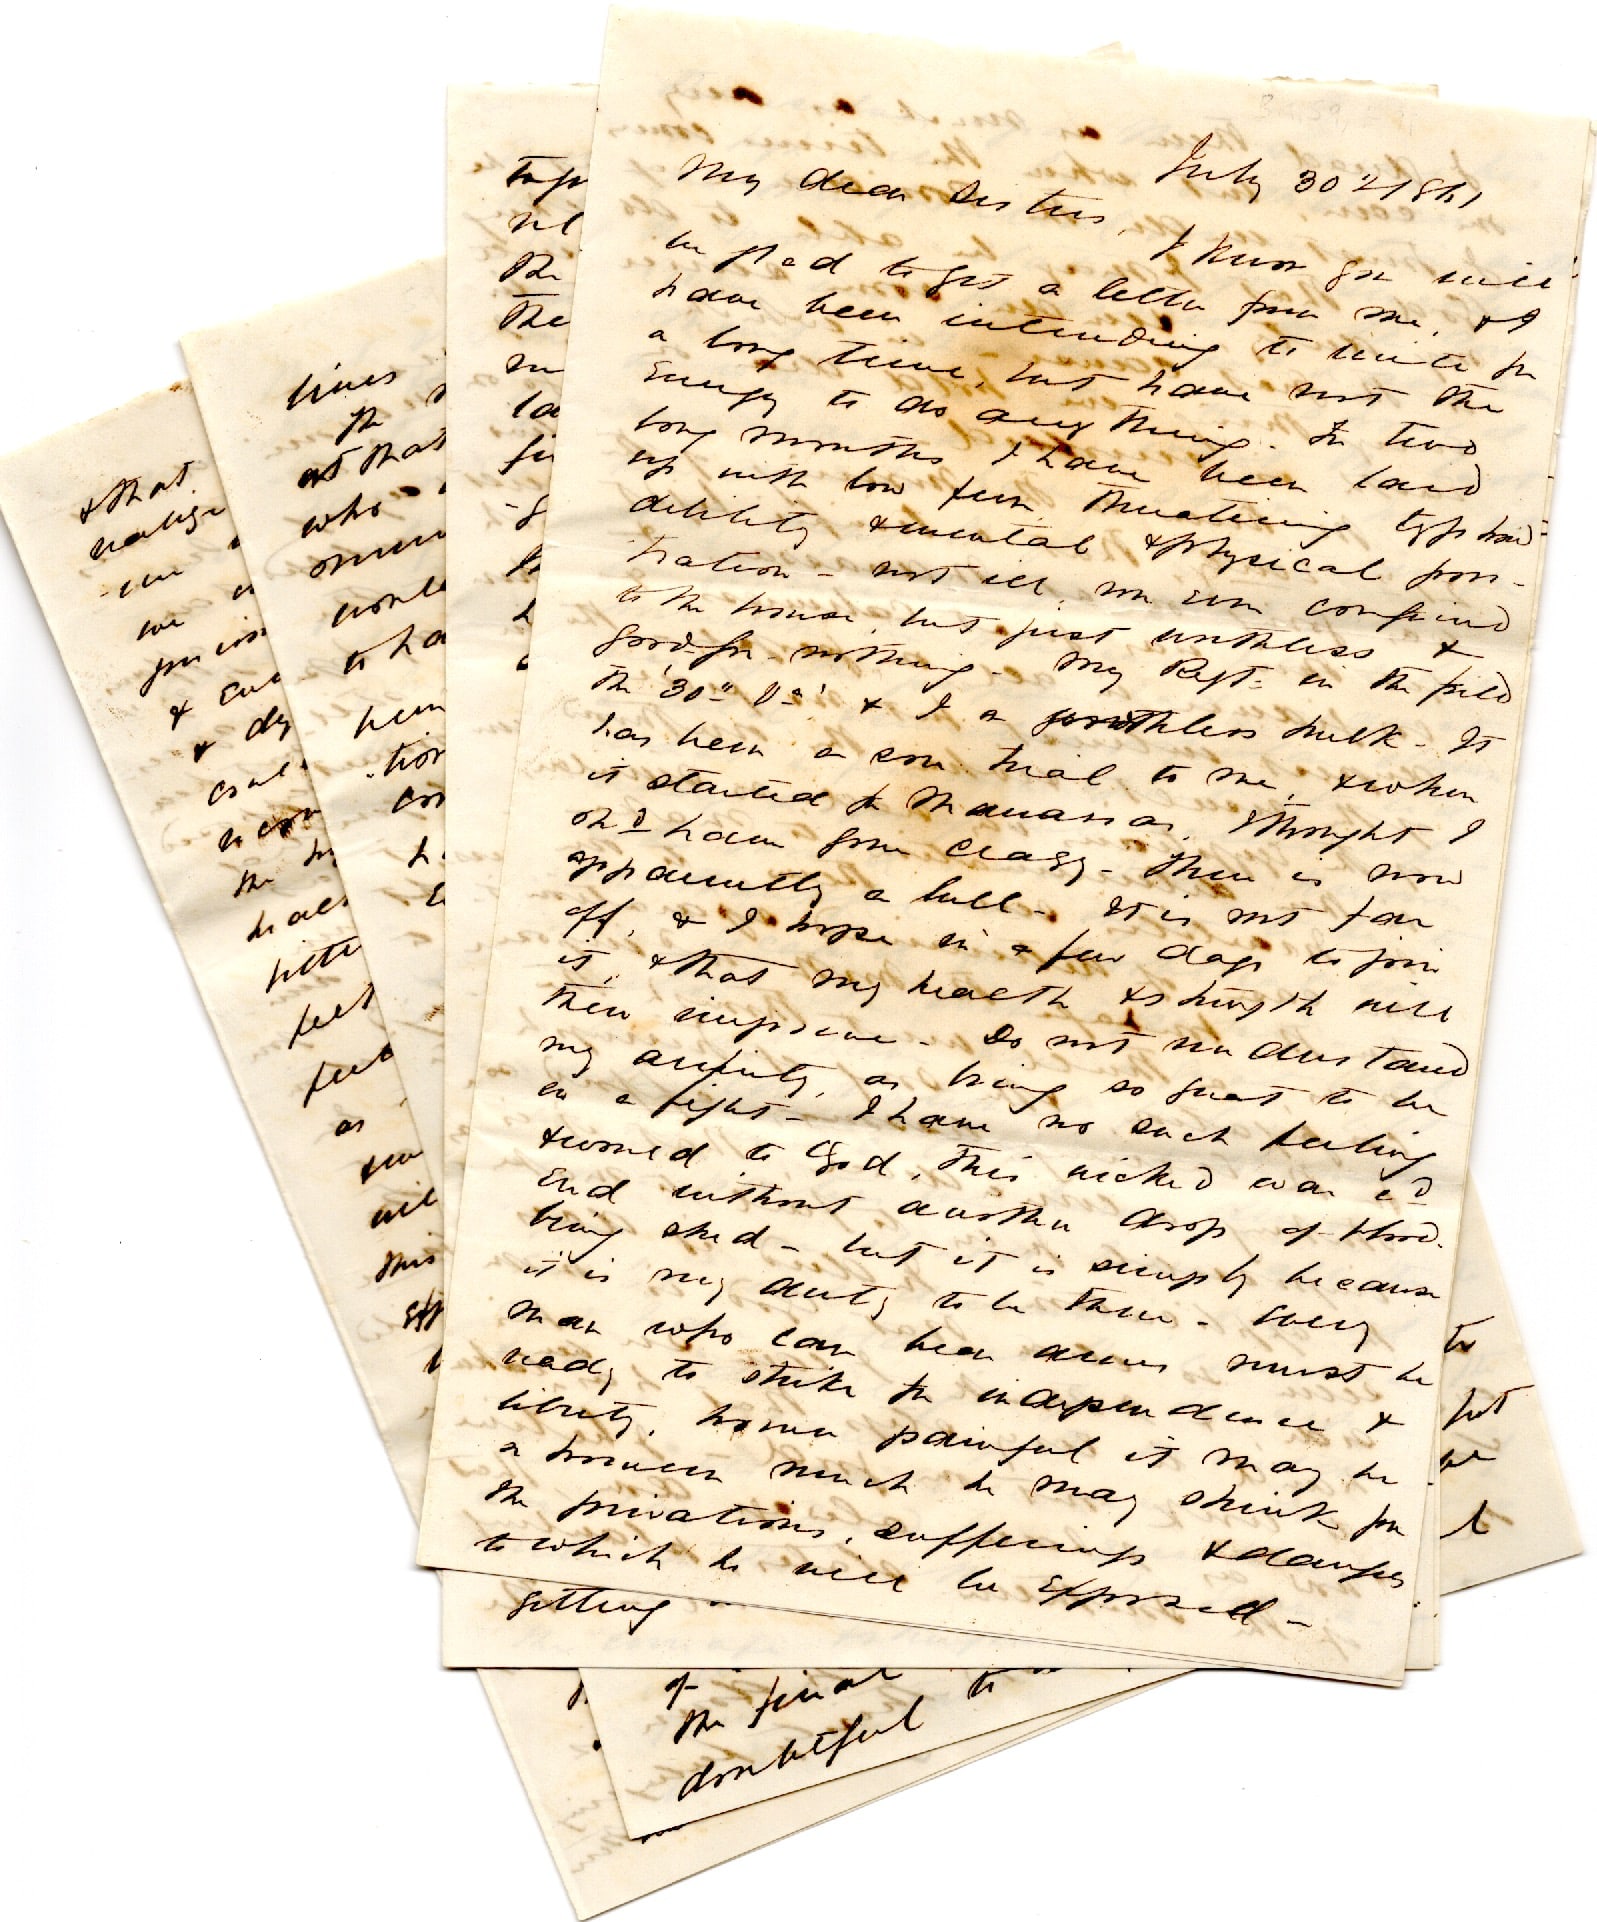 July 30th/1861
My dear Sister,
I know you will
be glad to get a letter from me, & I
have been intending to write for
a long time, but have not the
Energy to do any thing. For two
long months I have been laid
up with low fever, threatening typhoid-
debility & mental & physical pros-
tration - not ill, nor even confined
to the house, but just worthless &
good-for-nothing. My Regt. in the field
the '30" Va' & I a worthless hulk - It
has been a sore trial to me, & when
it started for Manassas, I thought I
shd have gone crazy - There is now
apparently a lull - It is not far
off, & I hope in a few days to join
it, & that my health & strength will
then improve - Do not understand
my anxiety, as being so great to be
in a fight - I have no such feeling
& would to God, this wicked war cd
End without another drop of blood
being shed - but it is simply because
it is my duty to be there - Every
man who can bear arms must be
ready to strike for independence &
liberty, however painful it may be -
or however much he may shrink from
the privations, sufferings & dangers
to which he will be Exposed -
getting
The
The
lines
the
at that
who
would
to ha
been
tion
con
& that
we
&
the
feet
feel
as
this
to
of
the final
doubtful to